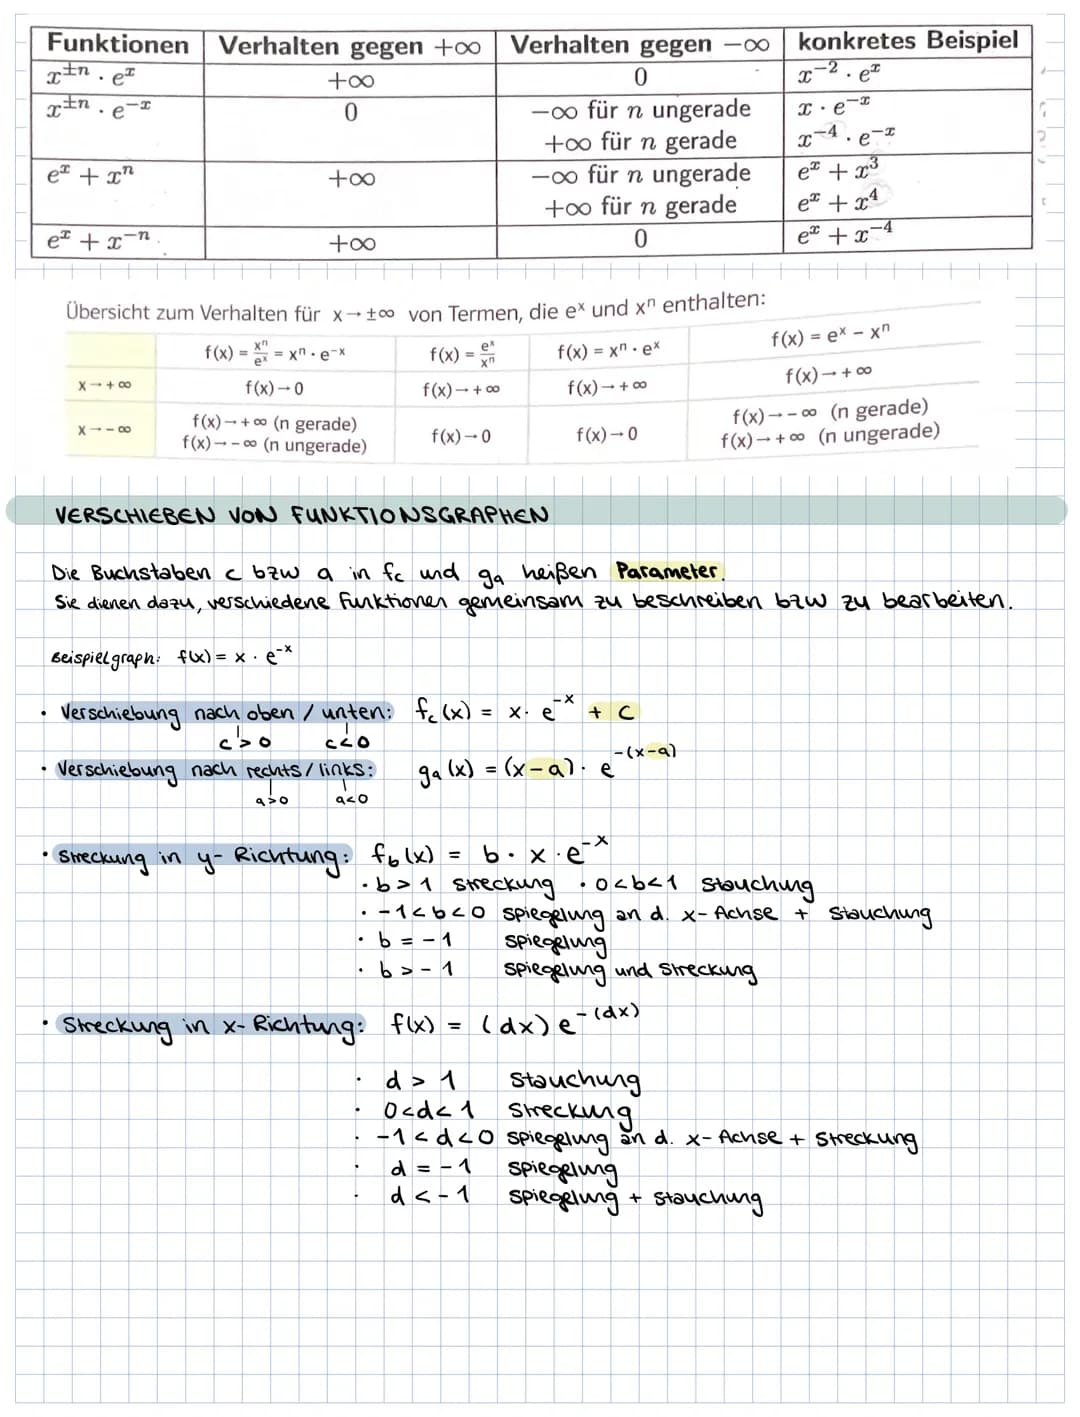 Funktionen | Verhalten gegen +∞ | Verhalten gegen −∞ | konkretes Beispiel
x^{±n} · e^x | +∞ | 0 | x^{−2} · e^x
x^{±n} · e^{−x} | 0 | −∞ für n ungerade | x · e^{−x}
+∞ für n gerade | x^{−4} · e^{−x}
e^x + x^n | +∞ | −∞ für n ungerade | e^x + x^3
+∞ für n gerade | e^x + x^4
e^x + x^{−n} | +∞ | 0 | e^x + x^{−4}
Übersicht zum Verhalten für x → ±∞ von Termen, die e^x und x^n enthalten:
f(x) = x^n/e^x = x^n · e^{−x} | f(x) = e^x/x^n | f(x) = x^n · e^x | f(x) = e^x − x^n
x → +∞ | f(x) → 0 | f(x) → +∞ | f(x) → +∞ | f(x) → +∞
x → −∞ | f(x) → +∞ (n gerade) | f(x) → 0 | f(x) → 0 | f(x) → −∞ (n gerade)
f(x) → −∞ (n ungerade) | f(x) → +∞ (n ungerade)
VERSCHIEBEN VON FUNKTIONSGRAPHEN
Die Buchstaben c bzw a in f_c und g_a heißen Parameter.
Sie dienen dazu, verschiedene Funktionen gemeinsam zu beschreiben bzw zu bearbeiten.
Beispielgraph: f(x) = x · e^{-x}
· Verschiebung nach oben / unten: f_c(x) = x · e^{-x} + c
c>0 c<0
· Verschiebung nach rechts / links: g_a(x) = (x-a) · e^{-(x-a)}
a>0 a<0
· Streckung in y-Richtung: f_b(x) = b · x · e^{-x}
· b > 1 Streckung · 0<b<1 Stauchung
· -1<b<0 Spiegelung an d. x-Achse + Stauchung
· b = -1 Spiegelung
· b > -1 Spiegelung und Streckung
· Streckung in x-Richtung: f(x) = (dx) e^{-(dx)}
· d > 1 Stauchung
· 0<d<1 Streckung
· -1<d<0 Spiegelung an d. x-Achse + Streckung
· d = -1 Spiegelung
· d < -1 Spiegelung + Stauchung